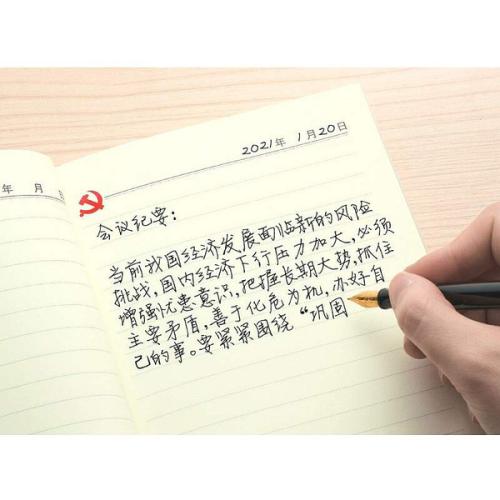 年 月 日
2021年 1月20日
会议纪要:
当前我国经济发展面临新的风险
挑战,国内经济下行压力加大,必须
增强忧患意识,把握长期大势,抓住
主要矛盾,善于化危为机,办好自
己的事。要紧紧围绕“巩固